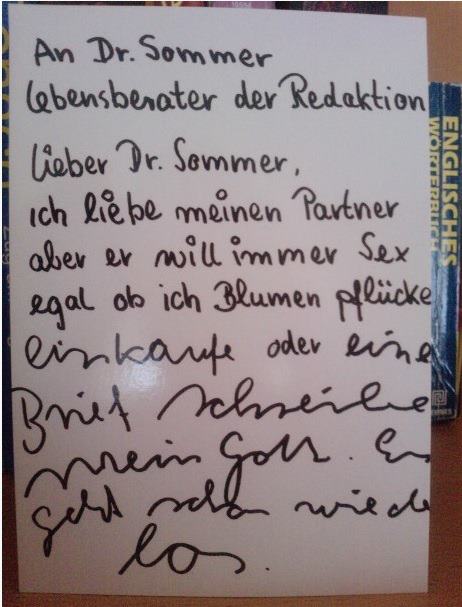 An Dr. Sommer
Lebensberater der Redaktion
Lieber Dr. Sommer,
ich liebe meinen Partner
aber er will immer Sex
egal ob ich Blumen pflücke
einkaufe oder eine
Brief schreibe
mein Gott. Es
geht schon wiede
los.
ENGLISCHES
WÖRTERBUCH